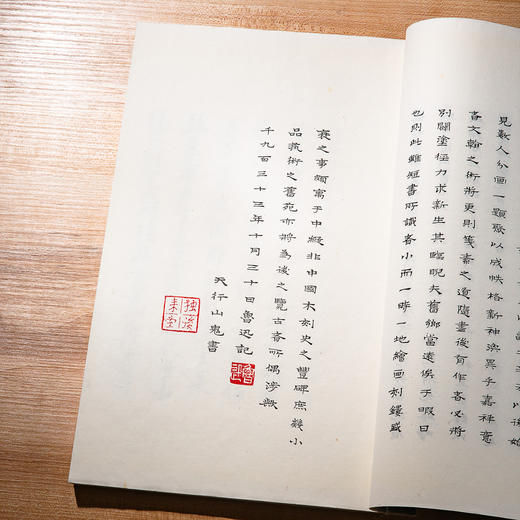 見數人分画一題聚以成帙格新神渙異乎嘉祥意
者文翰之術將更則箋素之道隨盡後有作者必將
別闢塗徑力求新生其臨睨夫舊鄉當遠俟于暇日
也則此雖短書所識者小而一時一地繪画刻鏤盛
衰之事頗寓于中縱非中國木刻史之豐碑庶幾小
品藝術之舊苑亦將為後之覽古者所偶涉歟
千九百三十三年十月三十日魯迅記
天行山鬼書